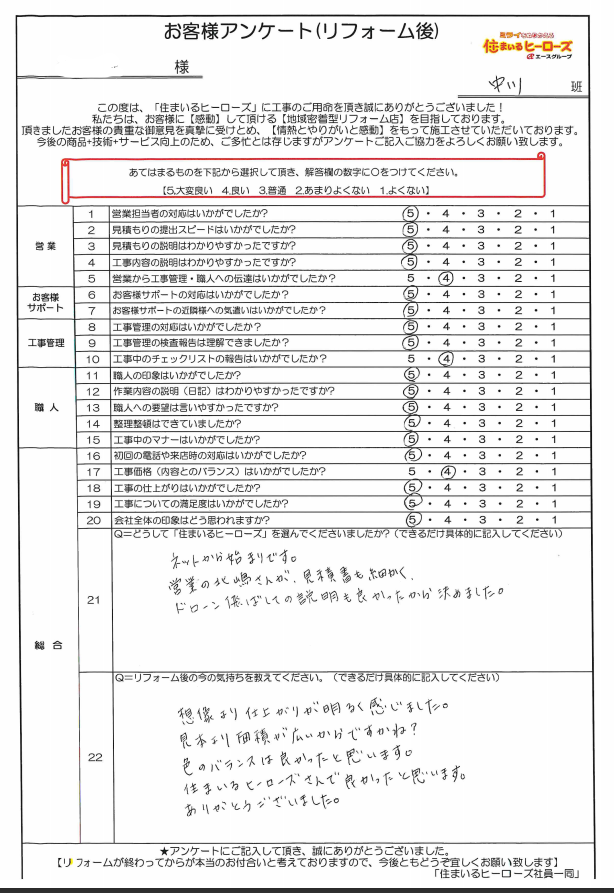 お客様アンケート(リフォーム後)
住まいるヒーローズ
エースグループ
様
中川 班
この度は、「住まいるヒーローズ」に工事のご用命を頂き誠にありがとうございました!
私たちは、お客様に【感動】して頂ける【地域密着型リフォーム店】を目指しております。
頂きましたお客様の貴重な御意見を真摯に受けとめ、【情熱とやりがいと感動】をもって施工させていただいております。
今後の商品+技術+サービス向上のため、ご多忙とは存じますがアンケートご記入ご協力をよろしくお願い致します。
あてはまるものを下記から選択して頂き、解答欄の数字に○をつけてください。
【5.大変良い 4.良い 3.普通 2.あまりよくない 1.よくない】
営業
1 営業担当者の対応はいかがでしたか? 5・4・3・2・1
2 見積もりの提出スピードはいかがでしたか? 5・4・3・2・1
3 見積もりの説明はわかりやすかったですか? 5・4・3・2・1
4 工事内容の説明はわかりやすかったですか? 5・4・3・2・1
5 営業から工事管理・職人への伝達はいかがでしたか? 5・4・3・2・1
お客様
サポート
6 お客様サポートの対応はいかがでしたか? 5・4・3・2・1
7 お客様サポートの近隣様への気遣いはいかがでしたか? 5・4・3・2・1
工事管理
8 工事管理の対応はいかがでしたか? 5・4・3・2・1
9 工事管理の検査報告は理解できましたか? 5・4・3・2・1
10 工事中のチェックリストの報告はいかがでしたか? 5・4・3・2・1
職人
11 職人の印象はいかがでしたか? 5・4・3・2・1
12 作業内容の説明(日記)はわかりやすかったですか? 5・4・3・2・1
13 職人への要望は言いやすかったですか? 5・4・3・2・1
14 整理整頓はできていましたか? 5・4・3・2・1
15 工事中のマナーはいかがでしたか? 5・4・3・2・1
総合
16 初回の電話や来店時の対応はいかがでしたか? 5・4・3・2・1
17 工事価格(内容とのバランス)はいかがでしたか? 5・4・3・2・1
18 工事の仕上がりはいかがでしたか? 5・4・3・2・1
19 工事についての満足度はいかがでしたか? 5・4・3・2・1
20 会社全体の印象はどう思われますか? 5・4・3・2・1
21
Q=どうして「住まいるヒーローズ」を選んでくださいましたか?(できるだけ具体的に記入してください)
ネットから始まりです。
営業の北嶋さんが、見積書も細かく、
ドローン飛ばしての説明も良かったから決めました。
22
Q=リフォーム後の今の気持ちを教えてください。(できるだけ具体的に記入してください)
想像より仕上がりが明るく感じました。
見本より面積が広いからですかね?
色のバランスは良かったと思います。
住まいるヒーローズさんで良かったと思います。
ありがとうございました。
★アンケートにご記入して頂き、誠にありがとうございました。
【リフォームが終わってからが本当のお付合いと考えておりますので、今後ともどうぞ宜しくお願い致します】
「住まいるヒーローズ社員一同」